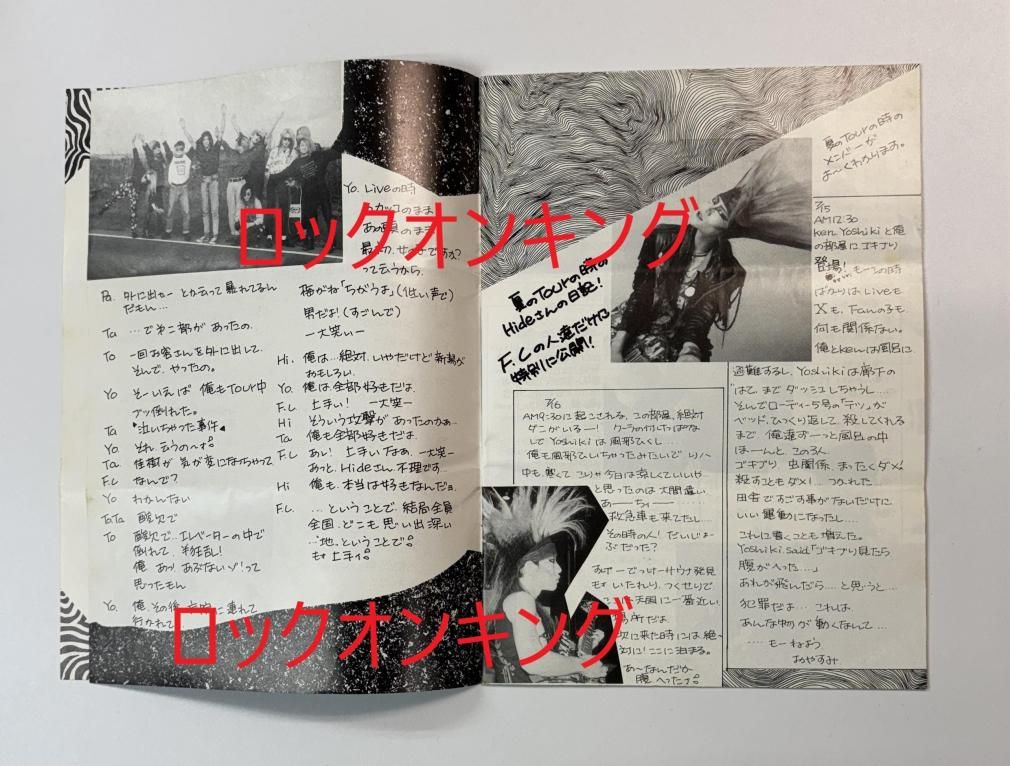 ロックオンキング
Yo. Liveの時
最
って云うから、
俺がね「ちがうよ」(低い声で)
男だよ!(すごんで)
—大笑い—
Pa. 外に出せー とか云って暴れてるん
だもん…
Ta …で第二部があったの。
To 一回お客さんを外に出して、
そんで、やったの。
Yo. そーいえば 俺もTour中
ブッ倒れた。
Ta "泣いちゃった事件"
Yo それ、云うのへす。
Ta. 佳樹が 気が変になっちゃって
F.C なんで?
Yo わかんない
TaTa 酸欠で
To 酸欠で…エレベーターの中で
倒れて、半狂乱!
俺 あっ! あぶないゾ!って
思ったもん
Yo. 俺、その後、病院に連れて
行かれて
Hi. 俺は…絶対、いやだけど新潟が
おもしろい。
Yo. 俺は全部好きだよ
F.C 上手い! —大笑—
Hi そういう攻撃があったのかぁ…
Ta 俺も全部好きだよ。
F.C あい! 上手いなぁ。—大笑—
あっと、Hideさん、不理です…
Hi 俺も、本当は好きなんだョ。
F.C. …ということで 結局全員
全国、どこも思い出深い
地、ということで。
もォ 上手ィ。
ロックオンキング
夏のTourの時の
メンバーが
よ〜くわかります。
夏のTourの時の
Hideさんの日記!
F.Cの人達だけに
特別に公開!
7/15
AM12:30
ken, Yoshikiと俺
の部屋にゴキブリ
登場! もーこの時
ばかりはLiveも
Xも、Fanの子も
何も関係ない。
俺とkenは風呂に
避難するし、Yoshikiは廊下の
はてまでダッシュしちゃうし…
そんでローディー5号の「テツ」が
ベッド、ひっくり返して、殺してくれる
まで 俺達ずーっと風呂の中
ほーんと、この3人
ゴキブリ 虫関係、まったくダメ!
殺すこともダメ!… つかれた
田舎ですごす事がないだけに
いい運動になったし…
これに書くことも増えた。
Yoshiki said「ゴキブリ見たら
腹がへった…」
あれが飛んだら…と思うと…
犯罪だよ… これは。
あんな物が 動くなんて…
…もーねよう
おやすみ
7/16
AM9:30に起こされる、この部屋、絶対
ダニがいるー! クーラー付けっぱな
しで Yoshikiは風邪ひくし…
俺も風邪ひいちゃったみたいで リハ
中も、寒くて、こりゃ今日は涼しくていいや
と思ったのは 大間違い
あー…ちィー……
救急車も来てたし…
その時の人! だいじょー
ぶだった?
すげーでっけーサウナ発見
もォ いたれり、つくせりで
天国に一番近い
場所だよ
次に来た時には 絶〜
対に! ここに泊まる。
あーなんだか
腹 へったナ。